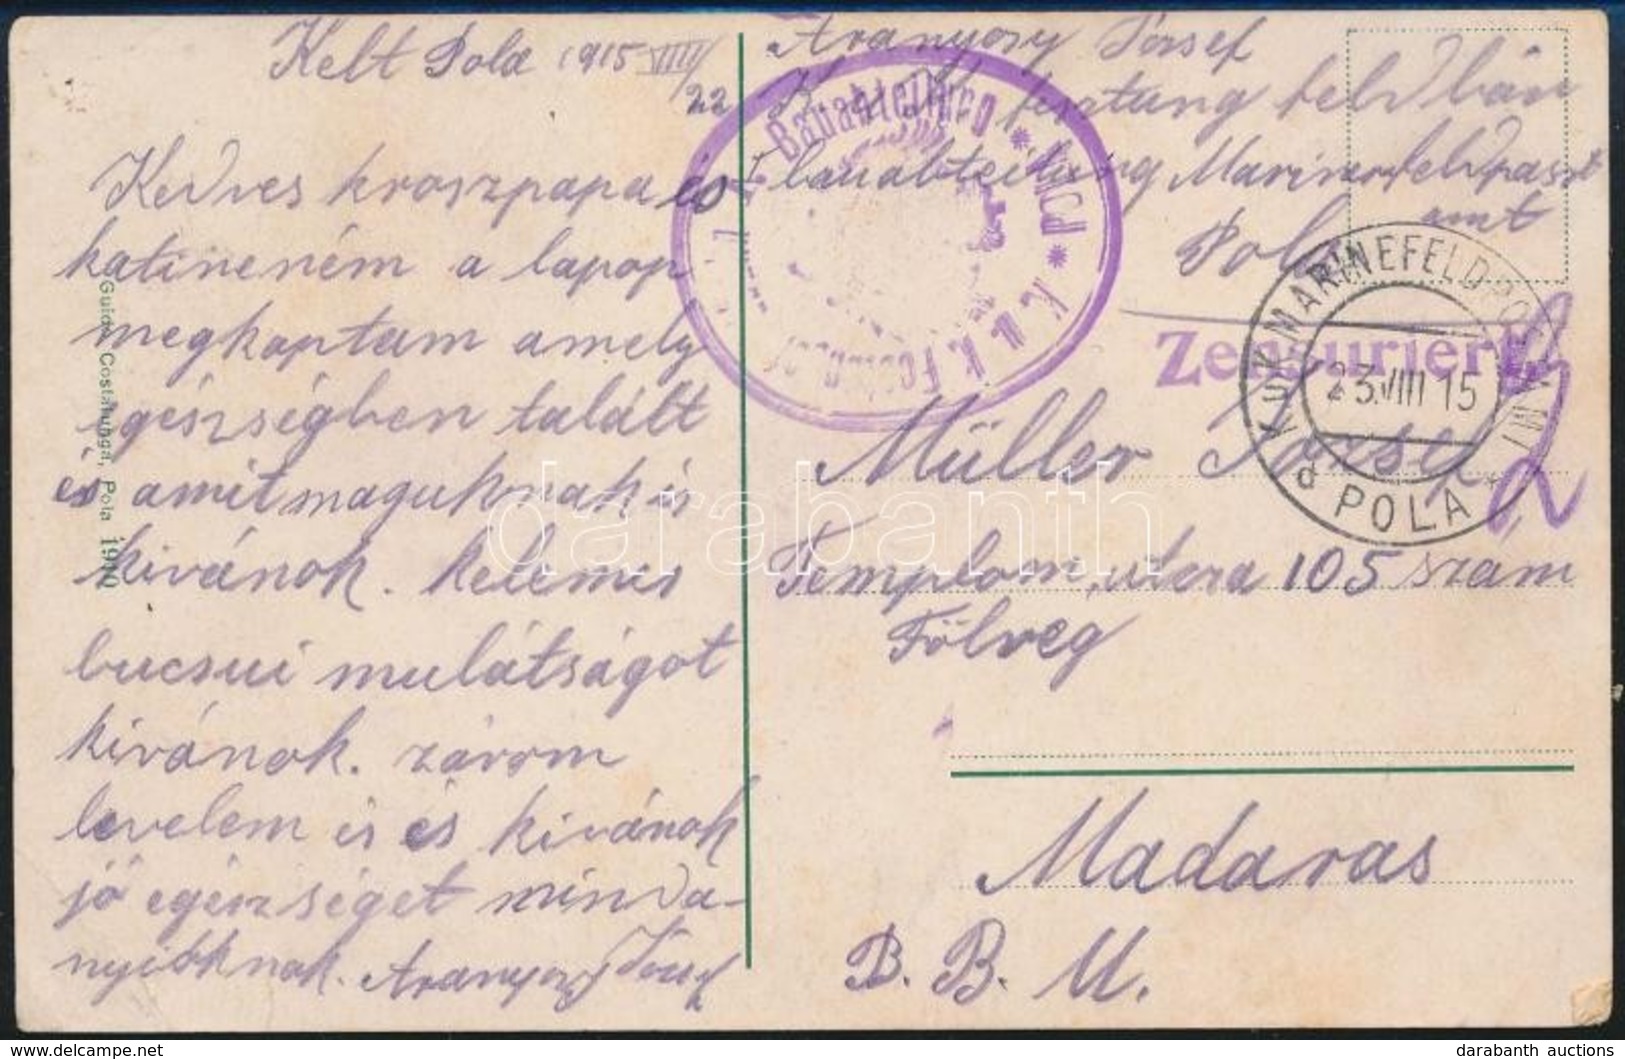 Kelt Pola 1915 VIII/22
Kedves kroszpapa és
katineném a lapop
megkaptam amely
egészségben talált
és amit maguknak is
kivánok. kelemes
bucsui mulátságot
kivánok. zárom
levelem is és kivánok
jó egészséget minda-
nyioknak. Aranyosy József
Guido Costalunga, Pola 1910
Aranyosy József
K. u. K. festung feldbán
I bauabteilung Marinefeldpost
amt
Pola
Bauabteilung
K. u. K.
Zensuriert
K.u.K. MARINEFELDPOSTAMT
23.VIII 15
d POLA
Müller József
Templom utcza 105 szam
Fölveg
Madaras
B. B. M.
darabanth
darabanth auctions
www.delcampe.net